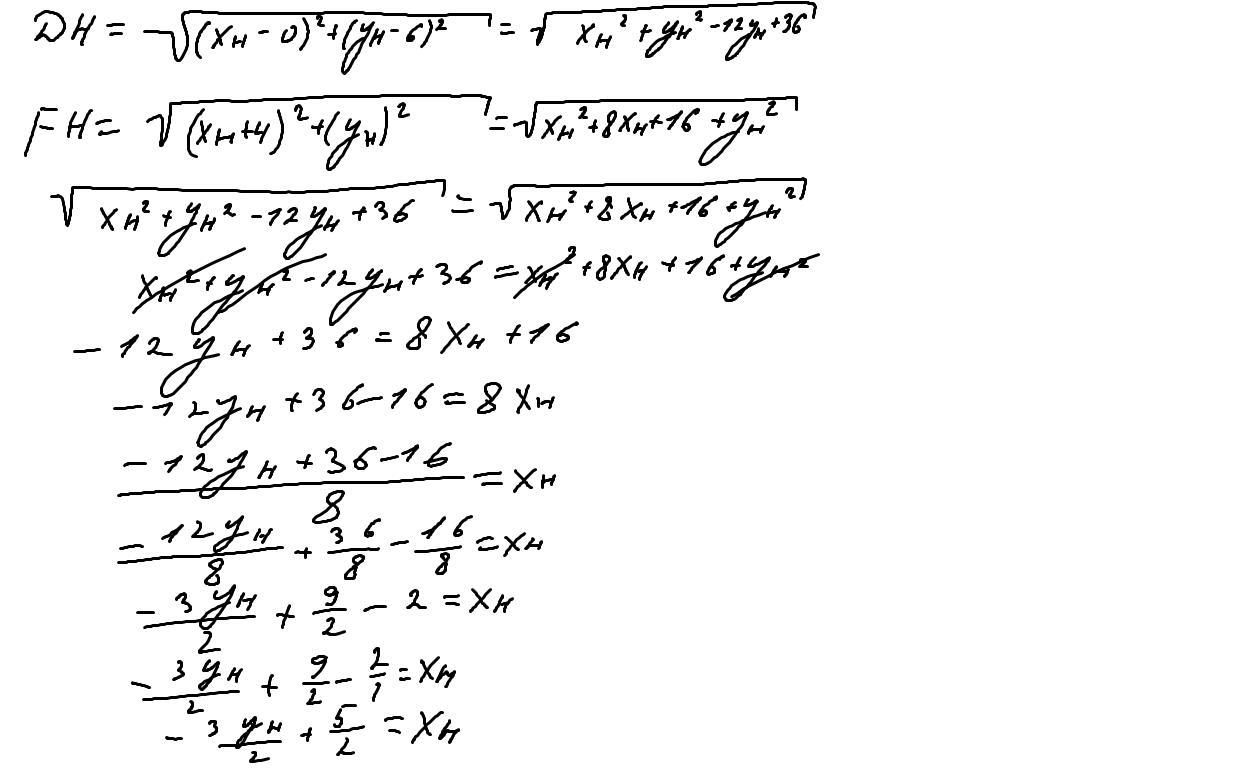 DH = √((x_H - 0)² + (y_H - 6)²) = √(x_H² + y_H² - 12y_H + 36)
FH = √((x_H + 4)² + (y_H)²) = √(x_H² + 8x_H + 16 + y_H²)
√(x_H² + y_H² - 12y_H + 36) = √(x_H² + 8x_H + 16 + y_H²)
x_H² + y_H² - 12y_H + 36 = x_H² + 8x_H + 16 + y_H²
- 12y_H + 36 = 8x_H + 16
- 12y_H + 36 - 16 = 8x_H
(- 12y_H + 36 - 16)/8 = x_H
- 12y_H/8 + 36/8 - 16/8 = x_H
- 3y_H/2 + 9/2 - 2 = x_H
- 3y_H/2 + 9/2 - 2/1 = x_H
- 3y_H/2 + 5/2 = x_H